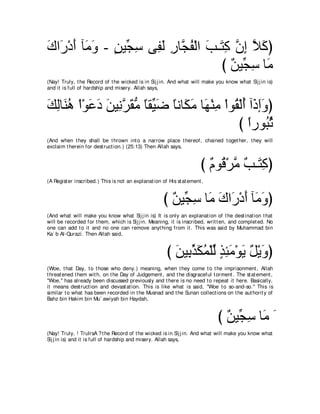 كَلاَّ إِنَّ كِتَـبَ الْفُجَّارِ لَفِى سِجِّينٍ - وَمَآ أَدْرَاكَ
مَا سِجِّينٌ )
(Nay! Truly, the Record of the wicked is in Sijjin. And what will make you know what Sijjin is)
and it is full of hardship and misery. Allah says,
(وَإَذَآ أُلْقُواْ مِنْهَا مَكَاناً ضَيِّقاً مُّقَرَّنِينَ دَعَوْاْ هُنَالِكَ
ثُبُوراً )
(And when they shall be thrown into a narrow place thereof, chained together, they will
exclaim therein for destruction.) (25:13) Then Allah says,
(كِتَـبٌ مَّرْقُومٌ )
(A Register inscribed.) This is not an explanation of His statement,
(وَمَآ أَدْرَاكَ مَا سِجِّينٌ )
(And what will make you know what Sijjin is) It is only an explanation of the destination that
will be recorded for them, which is Sijjin. Meaning, it is inscribed, written, and completed. No
one can add to it and no one can remove anything from it. This was said by Muhammad bin
Ka`b Al-Qurazi. Then Allah said,
(وَيْلٌ يَوْمَئِذٍ لِّلْمُكَذِّبِينَ )
(Woe, that Day, to those who deny.) meaning, when they come to the imprisonment, Allah
threatened them with, on the Day of Judgement, and the disgraceful torment. The statement,
"Woe," has already been discussed previously and there is no need to repeat it here. Basically,
it means destruction and devastation. This is like what is said, "Woe to so-and-so." This is
similar to what has been recorded in the Musnad and the Sunan collections on the authority of
Bahz bin Hakim bin Mu`awiyah bin Haydah,
َ مَا سِجِّينٌ )
(Nay! Truly, ! TrulrsA ?the Record of the wicked is in Sijjin. And what will make you know what
Sijjin is) and it is full of hardship and misery. Allah says,